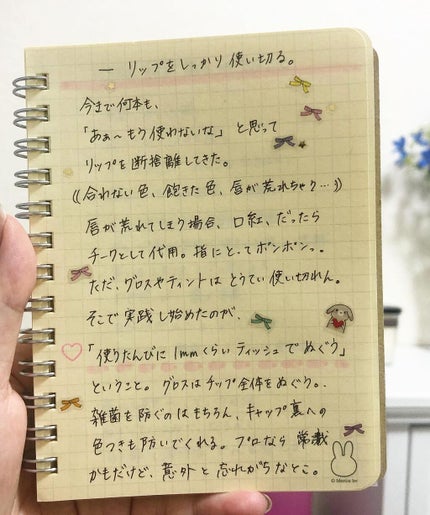 ー リップをしっかり使い切る。
今まで何本も、
「あぁ〜もう使わないな」と思って
リップを断捨離してきた。
((合わない色、飽きた色、唇が荒れちゃう…))
唇が荒れてしまう場合、口紅、だったら
チークとして代用。指にとってポンポンっ。
ただ、グロスやティントはとうてい使い切れん。
そこで実践し始めたのが、
「使うたんびに1mmくらいティッシュでぬぐう」
ということ。グロスはチップ全体をぬぐう。
雑菌を防ぐのはもちろん、キャップ裏への
色つきも防いでくれる。プロなら常識
かもだけど、意外と忘れがちなとこ。
© Mercis bv